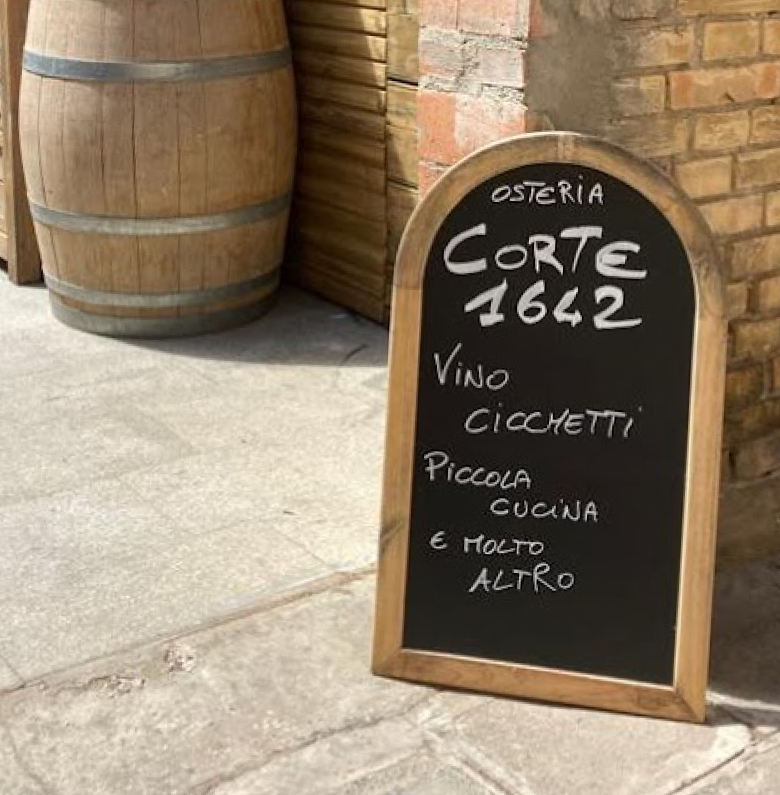 OSTERIA
CORTE
1642
VINO
CICCHETTI
PICCOLA
CUCINA
E MOLTO
ALTRO